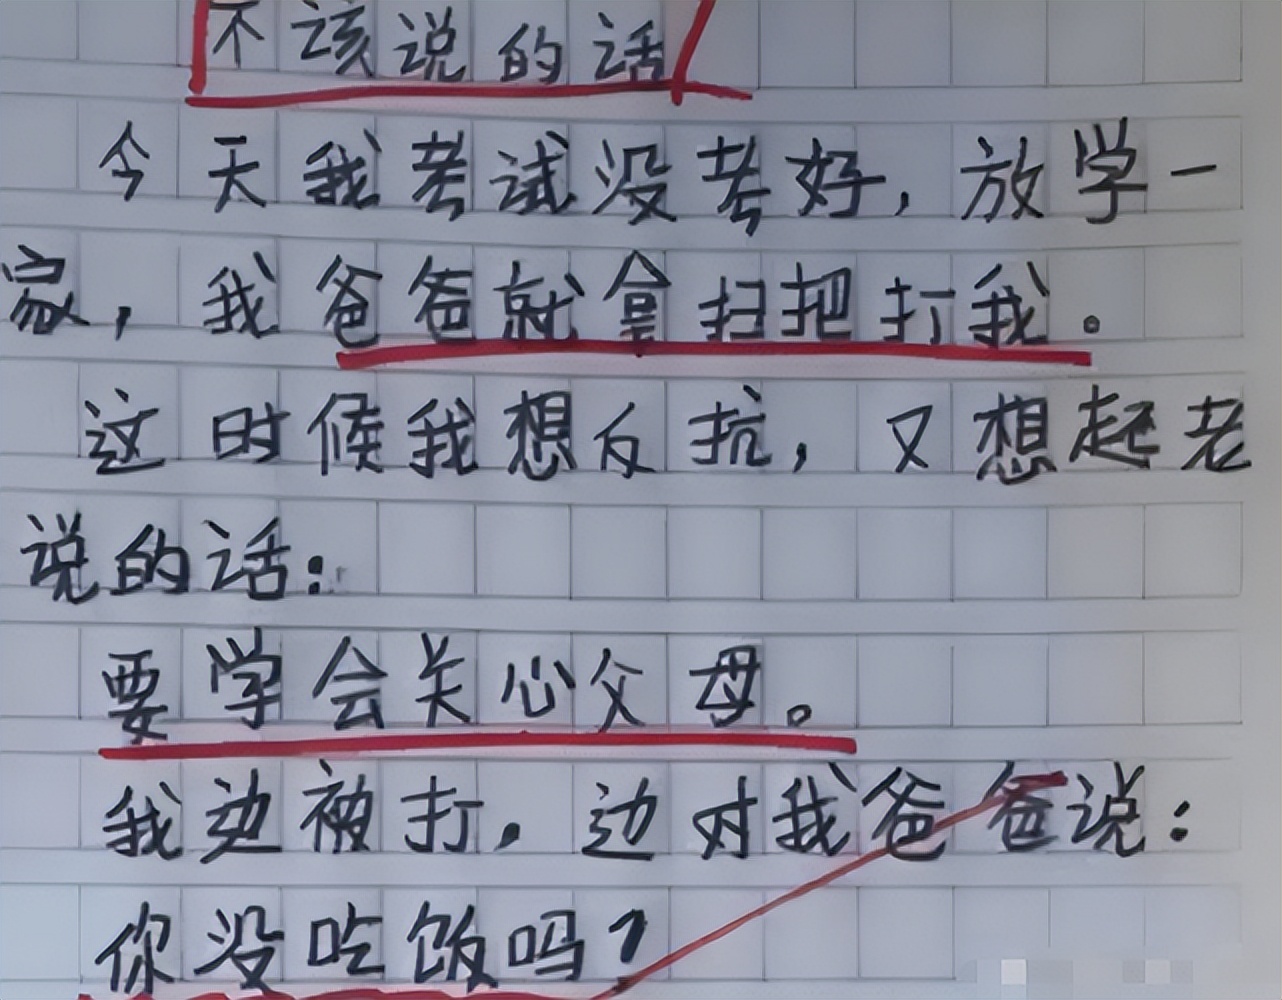 不该说的话
今天我考试没考好，放学一
家，我爸爸就拿扫把打我。
这时候我想反抗，又想起老
说的话：
要学会关心父母。
我边被打，边对我爸爸说：
你没吃饭吗？